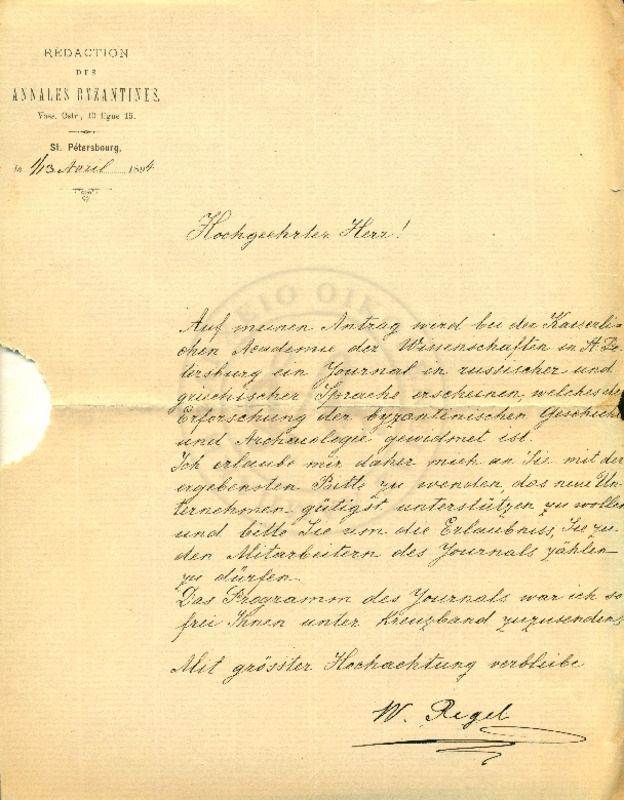 RÉDACTION
DES
ANNALES BYZANTINES.
Vass. Ostr., 10 ligne 15.
St. Pétersbourg,
le 1/13 Avril 1894
Hochgeehrter Herr!
Auf meinen Antrag wird bei der Kaiserli-
chen Academie der Wissenschaften in St. Pe-
tersburg ein Journal in russischer und
griechischer Sprache erscheinen, welches der
Erforschung der byzantinischen Geschichte
und Archaeologie gewidmet ist.
Ich erlaube mir daher mich an Sie mit der
ergebensten Bitte zu wenden, das neue Un-
ternehmen gütigst unterstützen zu wollen
und bitte Sie um die Erlaubniss, Sie zu
den Mitarbeitern des Journals zählen
zu dürfen.
Das Programm des Journals war ich so
frei Ihnen unter Kreuzband zuzusenden.
Mit grösster Hochachtung verbleibe
W. Regel